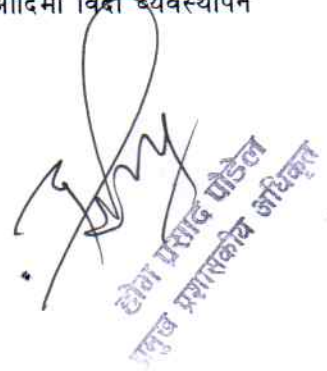 आदिमा विदा व्यवस्थापन
प्रसाद पौडेल
प्रमुख प्रशासकीय अधिकृत